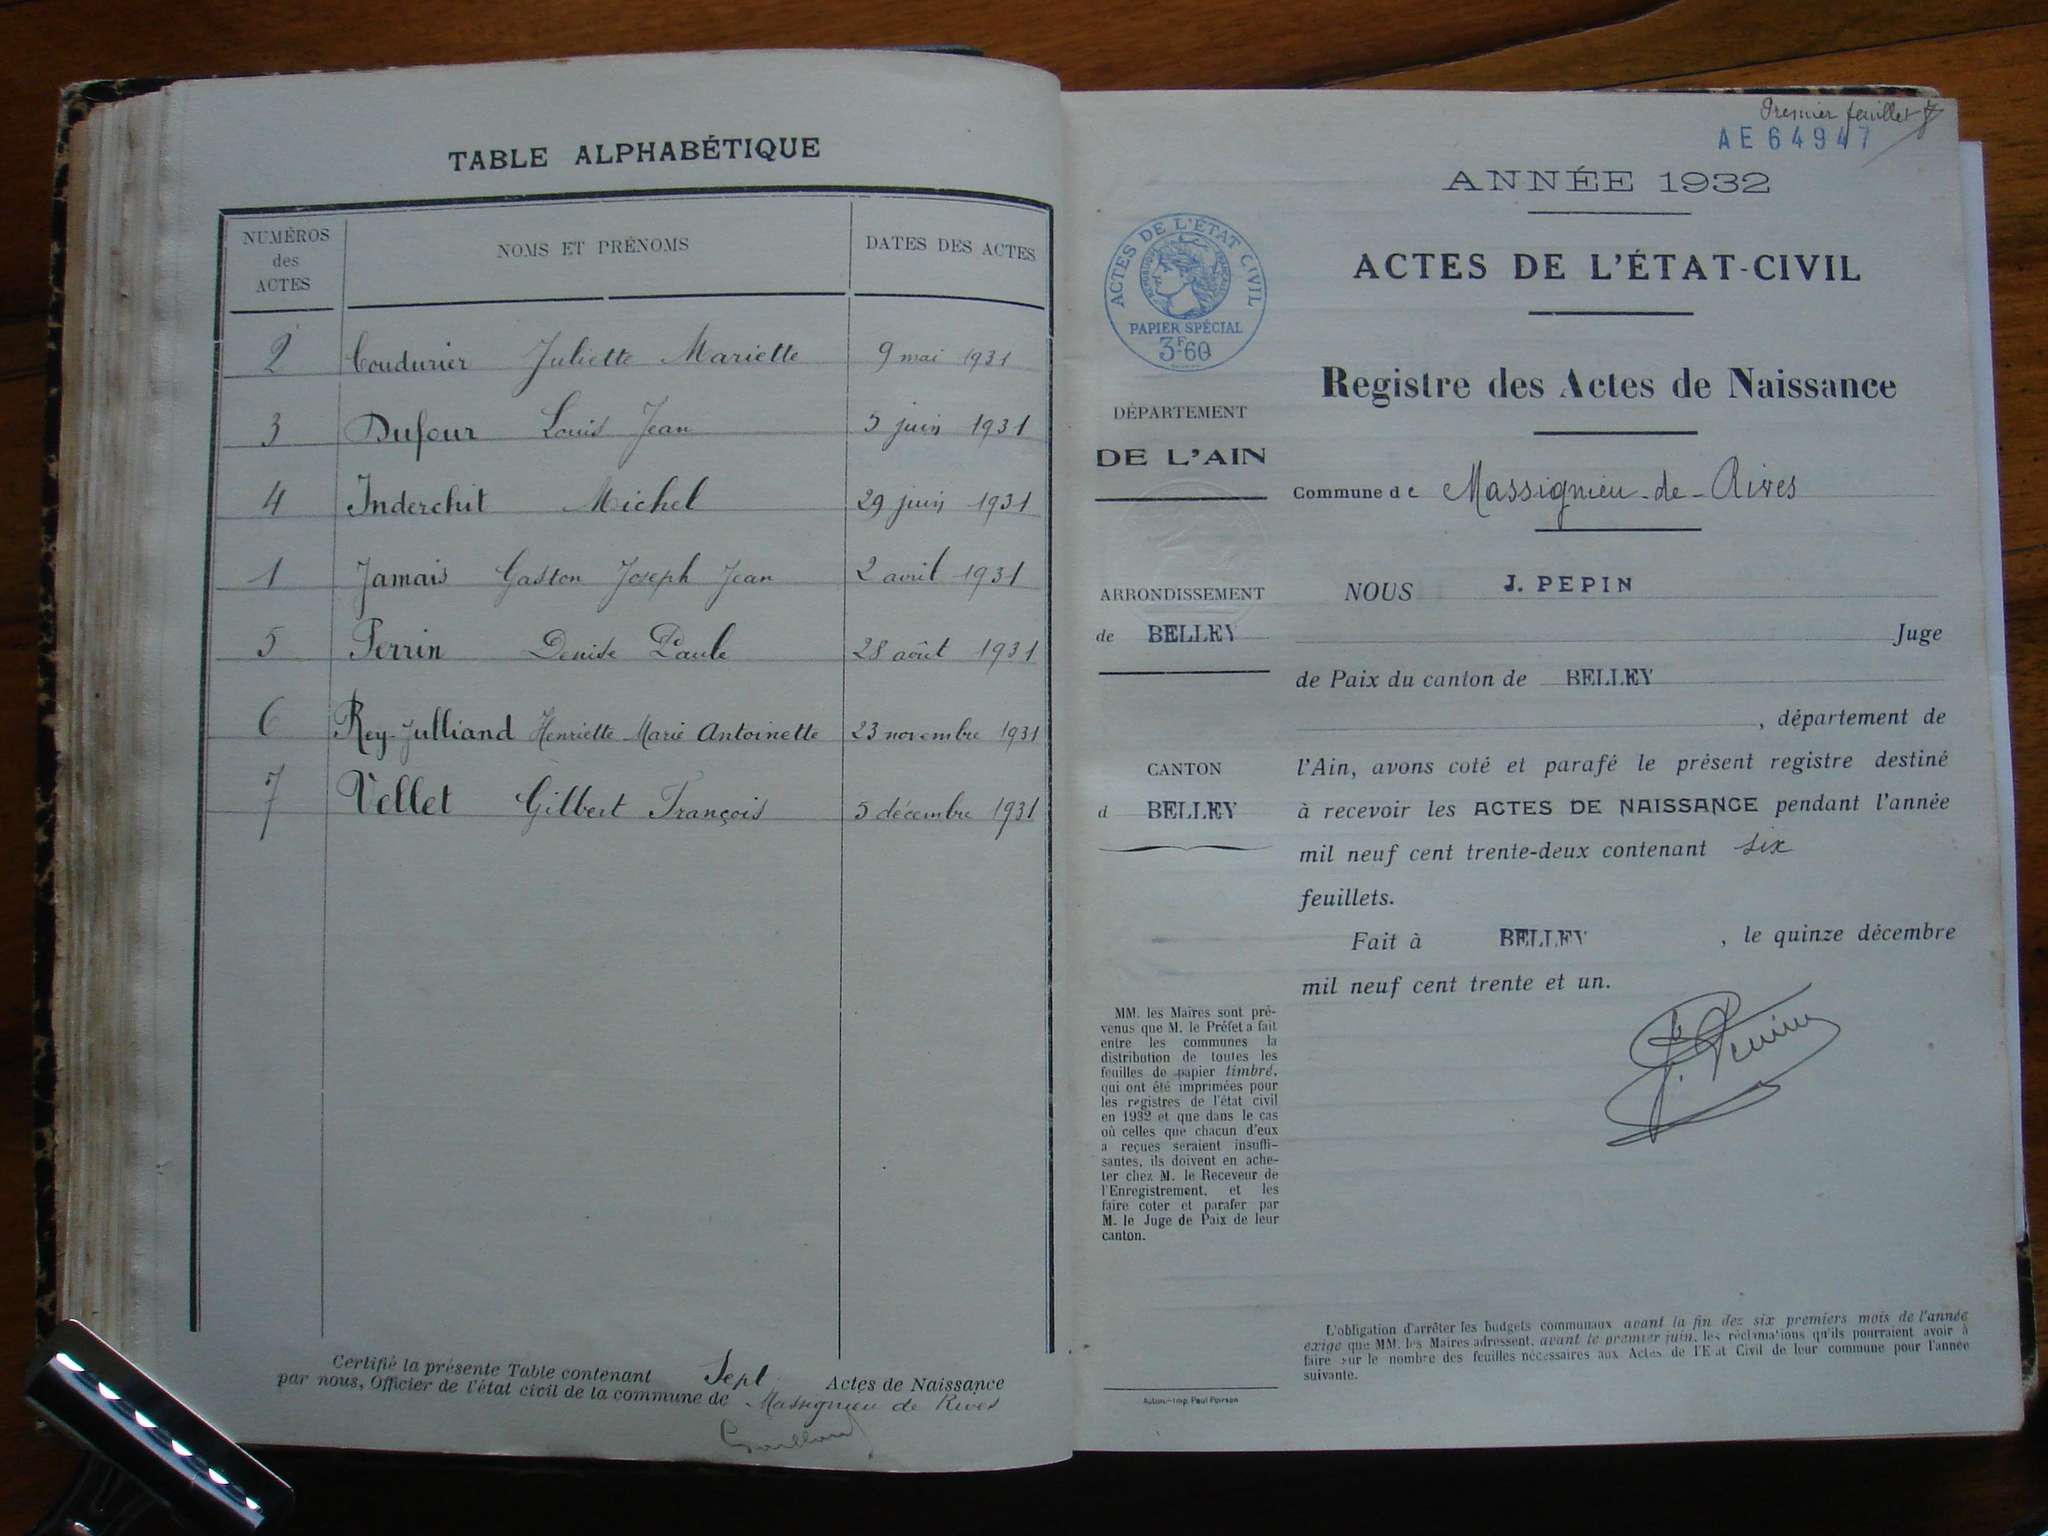 TABLE ALPHABÉTIQUE
NUMÉROS
des
ACTES
NOMS ET PRÉNOMS
DATES DES ACTES
2 Coudurier Juliette Mariette 9 mai 1931
3 Dufour Louis Jean 5 juin 1931
4 Inderchit Michel 29 juin 1931
1 Jamais Gaston Joseph Jean 2 avril 1931
5 Perrin Denise Paule 28 août 1931
6 Rey-Julliand Henriette Marie Antoinette 23 novembre 1931
7 Vellet Gilbert François 5 décembre 1931
Certifié la présente Table contenant Sept Actes de Naissance
par nous, Officier de l'état civil de la commune de Massignieu de Rives
Premier feuillet
AE64947
ANNÉE 1932
ACTES DE L'ÉTAT-CIVIL
Registre des Actes de Naissance
ACTES DE L'ÉTAT CIVIL
RÉPUBLIQUE FRANÇAISE
PAPIER SPÉCIAL
3F.60
DÉPARTEMENT
DE L'AIN
ARRONDISSEMENT
de BELLEY
CANTON
d BELLEY
Commune de Massignieu-de-Rives
NOUS J. PEPIN
Juge
de Paix du canton de BELLEY
, département de
l'Ain, avons coté et parafé le présent registre destiné
à recevoir les ACTES DE NAISSANCE pendant l'année
mil neuf cent trente-deux contenant six
feuillets.
Fait à BELLEY , le quinze décembre
mil neuf cent trente et un.
MM. les Maires sont pré-
venus que M. le Préfet a fait
entre les communes la
distribution de toutes les
feuilles de papier timbré,
qui ont été imprimées pour
les registres de l'état civil
en 1932 et que dans le cas
où celles que chacun d'eux
a reçues seraient insuffi-
santes, ils doivent en ache-
ter chez M. le Receveur de
l'Enregistrement, et les
faire coter et parafer par
M. le Juge de Paix de leur
canton.
L'obligation d'arrêter les budgets communaux avant la fin des six premiers mois de l'année
exige que MM. les Maires adressent, avant le premier juin, les réclamations qu'ils pourraient avoir à
faire sur le nombre des feuilles nécessaires aux Actes de l'Etat Civil de leur commune pour l'année
suivante.
Autun.—Imp. Paul Poirson